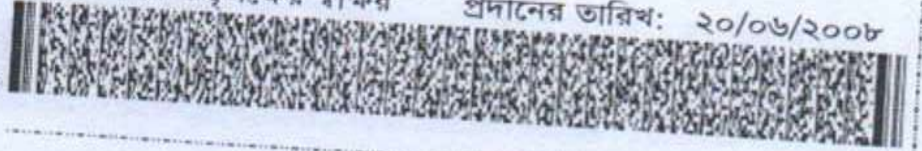 প্রদানের তারিখ: ২০/০৬/২০০৮